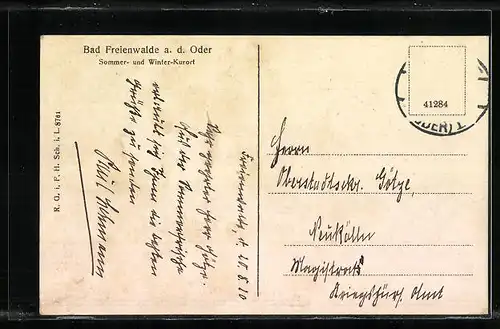 Bad Freienwalde a. d. Oder
Sommer- und Winter-Kurort
R. G. i. P. H. Sch. i. L. 8781
Freienwalde, d. 20.8.10
Sehr geehrter Herr Götze.
Aus der Sommerfrische
erlaubt sich Ihnen die besten
Grüße zu senden
Paul Lehmann
41284
(ODER) 1
Herrn
Oberstadtsekr. Götze,
Neukölln
Magistrat
Kriegsfürs. Amt